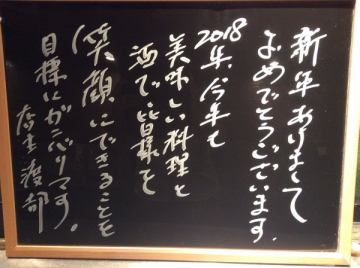 新年あけまして
おめでとうございます。
2018年、今年も
美味しい料理と
酒で、皆様を
笑顔にできることを
目標にがんばります。
店主渡部